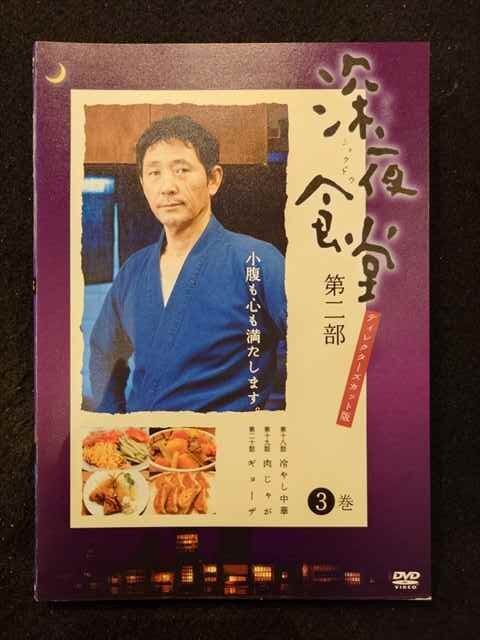 深夜食堂
シンヤショクドウ
第二部
ディレクターズカット版
小腹も心も満たします。
第十八話 冷やし中華
第十九話 肉じゃが
第二十話 ギョーザ
3巻
DVD
VIDEO